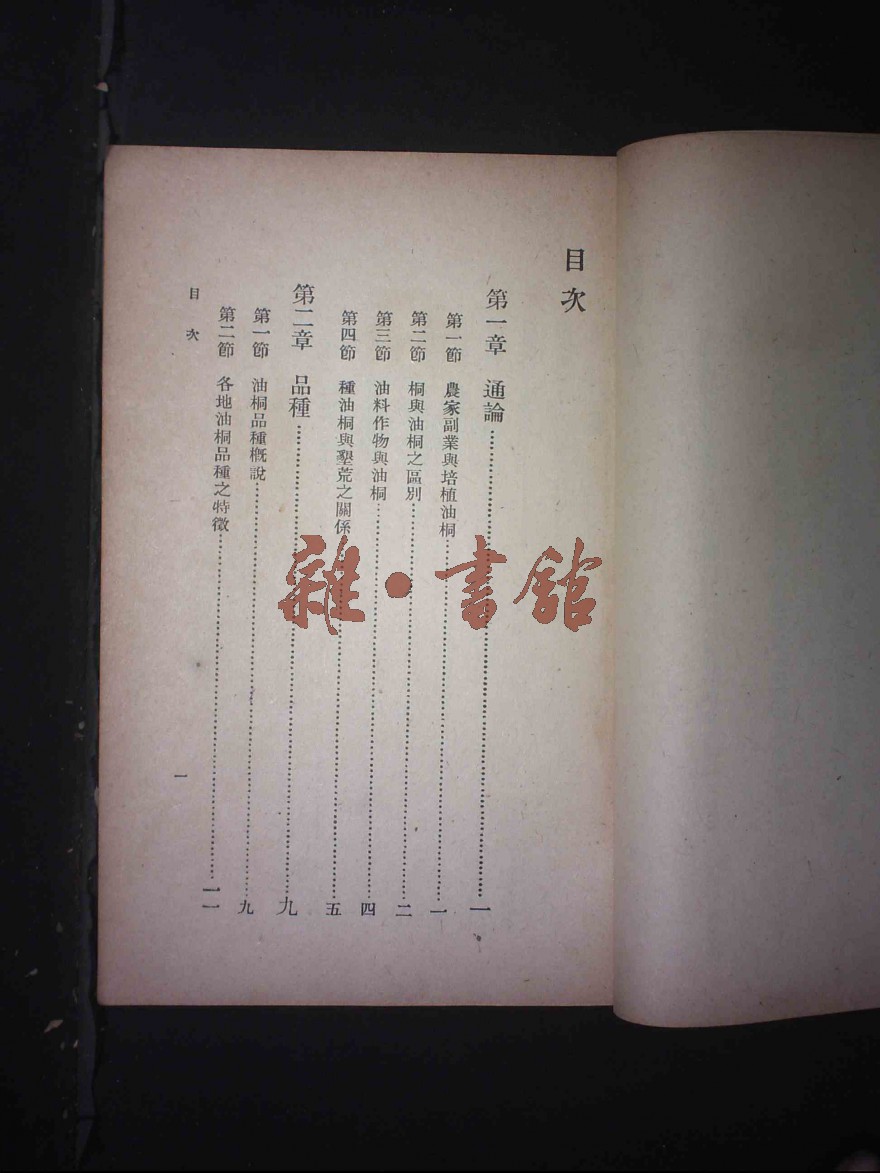 目次
第一章 通論……一
第一節 農家副業與培植油桐……一
第二節 桐與油桐之區別……二
第三節 油料作物與油桐……四
第四節 種油桐與墾荒之關係……五
第二章 品種……九
第一節 油桐品種概說……九
第二節 各地油桐品種之特徵……一一
目次
一
雜·書館